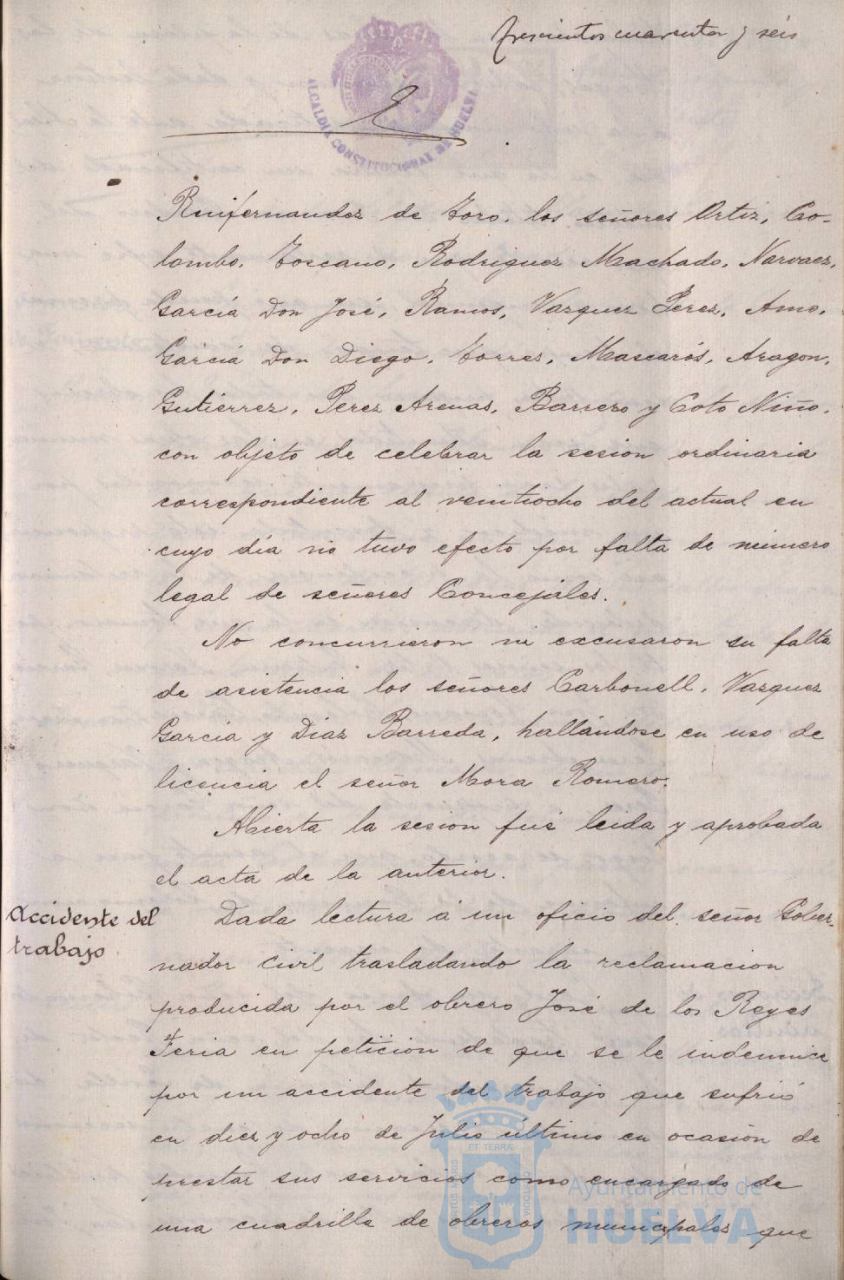 trescientos cuarenta y seis
ALCALDIA CONSTITUCIONAL DE HUELVA
Ruifernandez de Toro, los señores Ortiz, Co-
lombo, Toscano, Rodriguez Machado, Narvaez,
García Don José, Ramos, Vazquez Perez, Amo,
García Don Diego, Torres, Mascarós, Aragon,
Gutiérrez, Perez Arenas, Barrero y Coto Niño,
con objeto de celebrar la sesion ordinaria
correspondiente al veintiocho del actual en
cuyo día no tuvo efecto por falta de número
legal de señores Concejales.
No concurrieron ni excusaron su falta
de asistencia los señores Carbonell, Vazquez
Garcia y Diaz Barreda, hallándose en uso de
licencia el señor Mora Romero.
Abierta la sesion fué leida y aprobada
el acta de la anterior.
Accidente del
trabajo
Dada lectura á un oficio del señor Gober-
nador civil trasladando la reclamacion
producida por el obrero José de los Reyes
Feria en peticion de que se le indemnice
por un accidente del trabajo que sufrió
en diez y ocho de Julio último en ocasión de
prestar sus servicios como encargado de
una cuadrilla de obreros municipales que
Ayuntamiento de
HUELVA